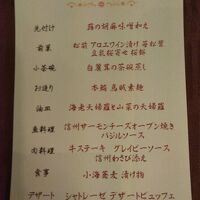 先付け 蕗の胡麻味噌和え
前菜 松前 アロエワイン漬け 苺松葉
豆乳桜寄せ 桜餅
小茶碗 白魚茸の茶碗蒸し
お造り 本鮪 烏賊素麺
油皿 海老天婦羅と山菜の天婦羅
魚料理 信州サーモンチーズオーブン焼き
バジルソース
肉料理 牛ステーキ グレイビーソース
信州わさび添え
食事 小海蕎麦 漬け物
デザート シャトレーゼ デザートビュッフェ